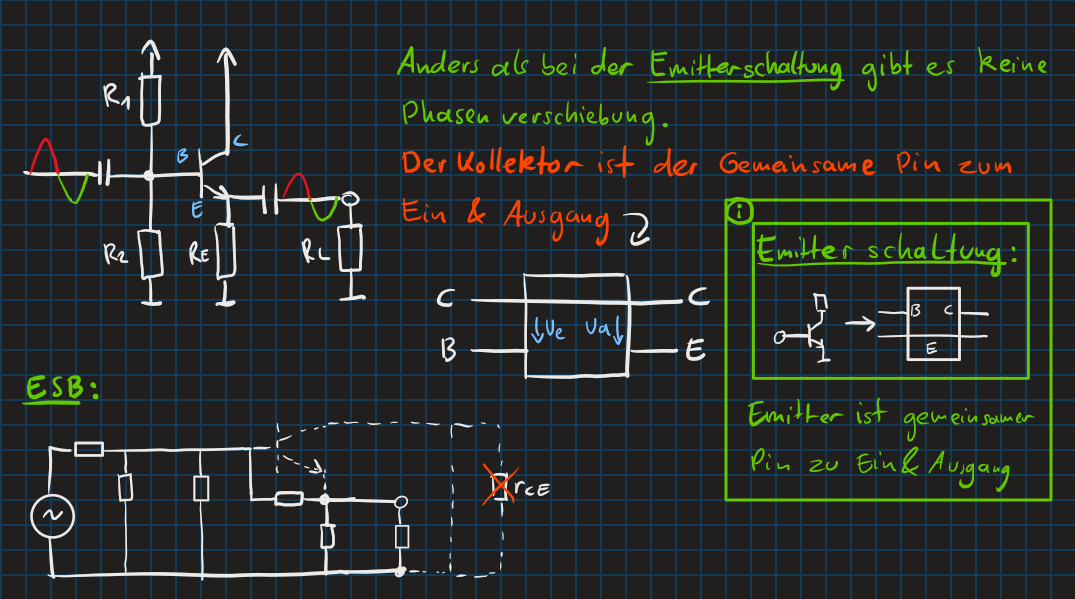 Anders als bei der Emitterschaltung gibt es keine
Phasenverschiebung.
Der Kollektor ist der Gemeinsame Pin zum
Ein & Ausgang
R1
B
C
E
R2
RE
RL
C
C
B
↓Ue
Ua↓
E
i
Emitterschaltung:
B
C
E
Emitter ist gemeinsamer
Pin zu Ein & Ausgang
ESB:
~
rCE